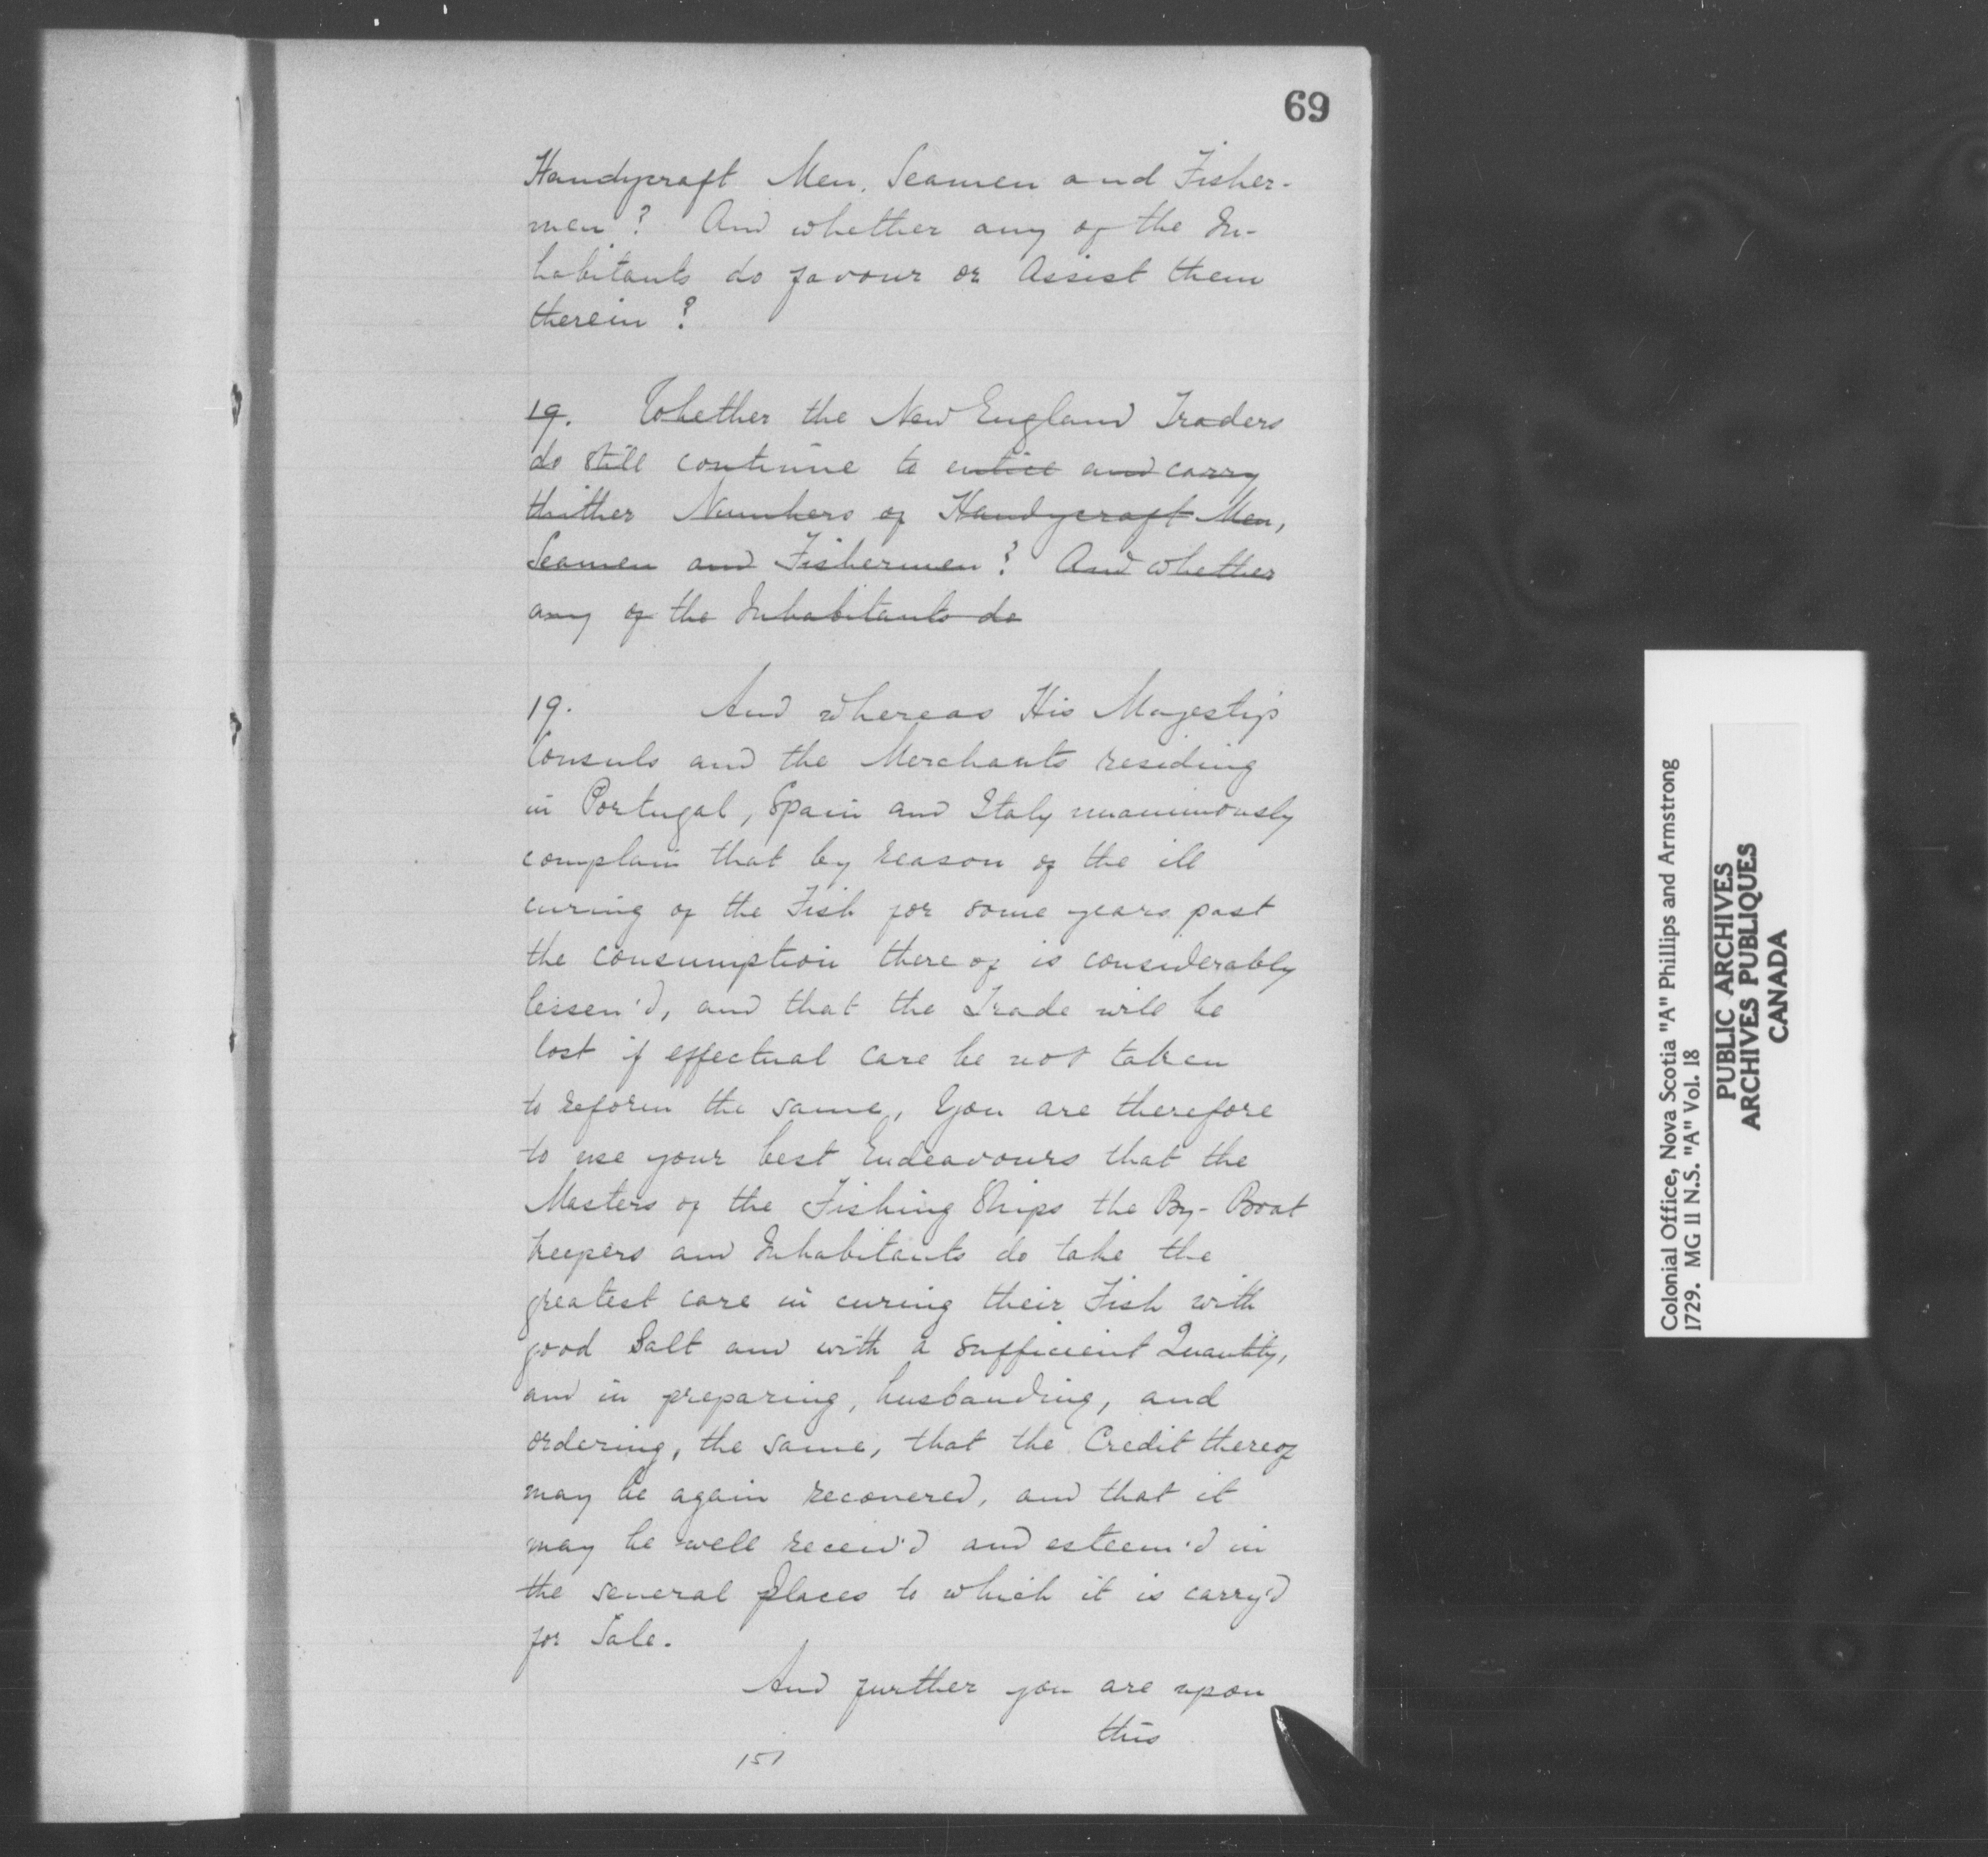 69
Handycraft Men, Seamen and Fisher-
men? And whether any of the In-
habitants do favour or Assist them
therein?
19. Whether the New England Traders
do still continue to entice and carry
thither Numbers of Handycraft Men,
Seamen and Fishermen? And whether
any of the Inhabitants do
19. And whereas His Majesty's
Consuls and the Merchants residing
in Portugal, Spain and Italy unanimously
complain that by reason of the ill
curing of the Fish for some years past
the consumption there of is considerably
lessen'd, and that the Trade will be
lost if effectual care be not taken
to reform the same, You are therefore
to use your best Endeavours that the
Masters of the Fishing Ships the By-Boat
keepers and Inhabitants do take the
greatest care in curing their Fish with
good Salt and with a sufficient Quantity,
and in preparing, husbanding, and
ordering, the same, that the Credit thereof
may be again recovered, and that it
may be well receiv'd and esteem'd in
the several places to which it is carry'd
for Sale.
And further you are upon
this
151
Colonial Office, Nova Scotia "A" Phillips and Armstrong
1729. MG 11 N.S. "A" Vol. 18
PUBLIC ARCHIVES
ARCHIVES PUBLIQUES
CANADA